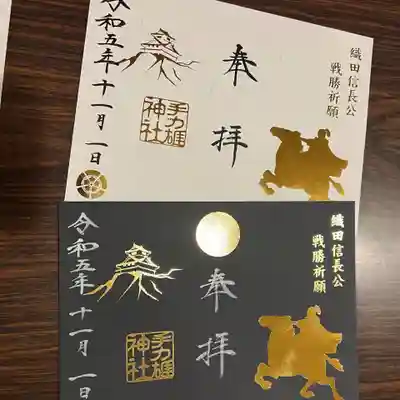 織田信長公
戦勝祈願
奉拝
手力雄
神社
令和五年十一月一日
織田信長公
戦勝祈願
奉拝
手力雄
神社
令和五年十一月一日